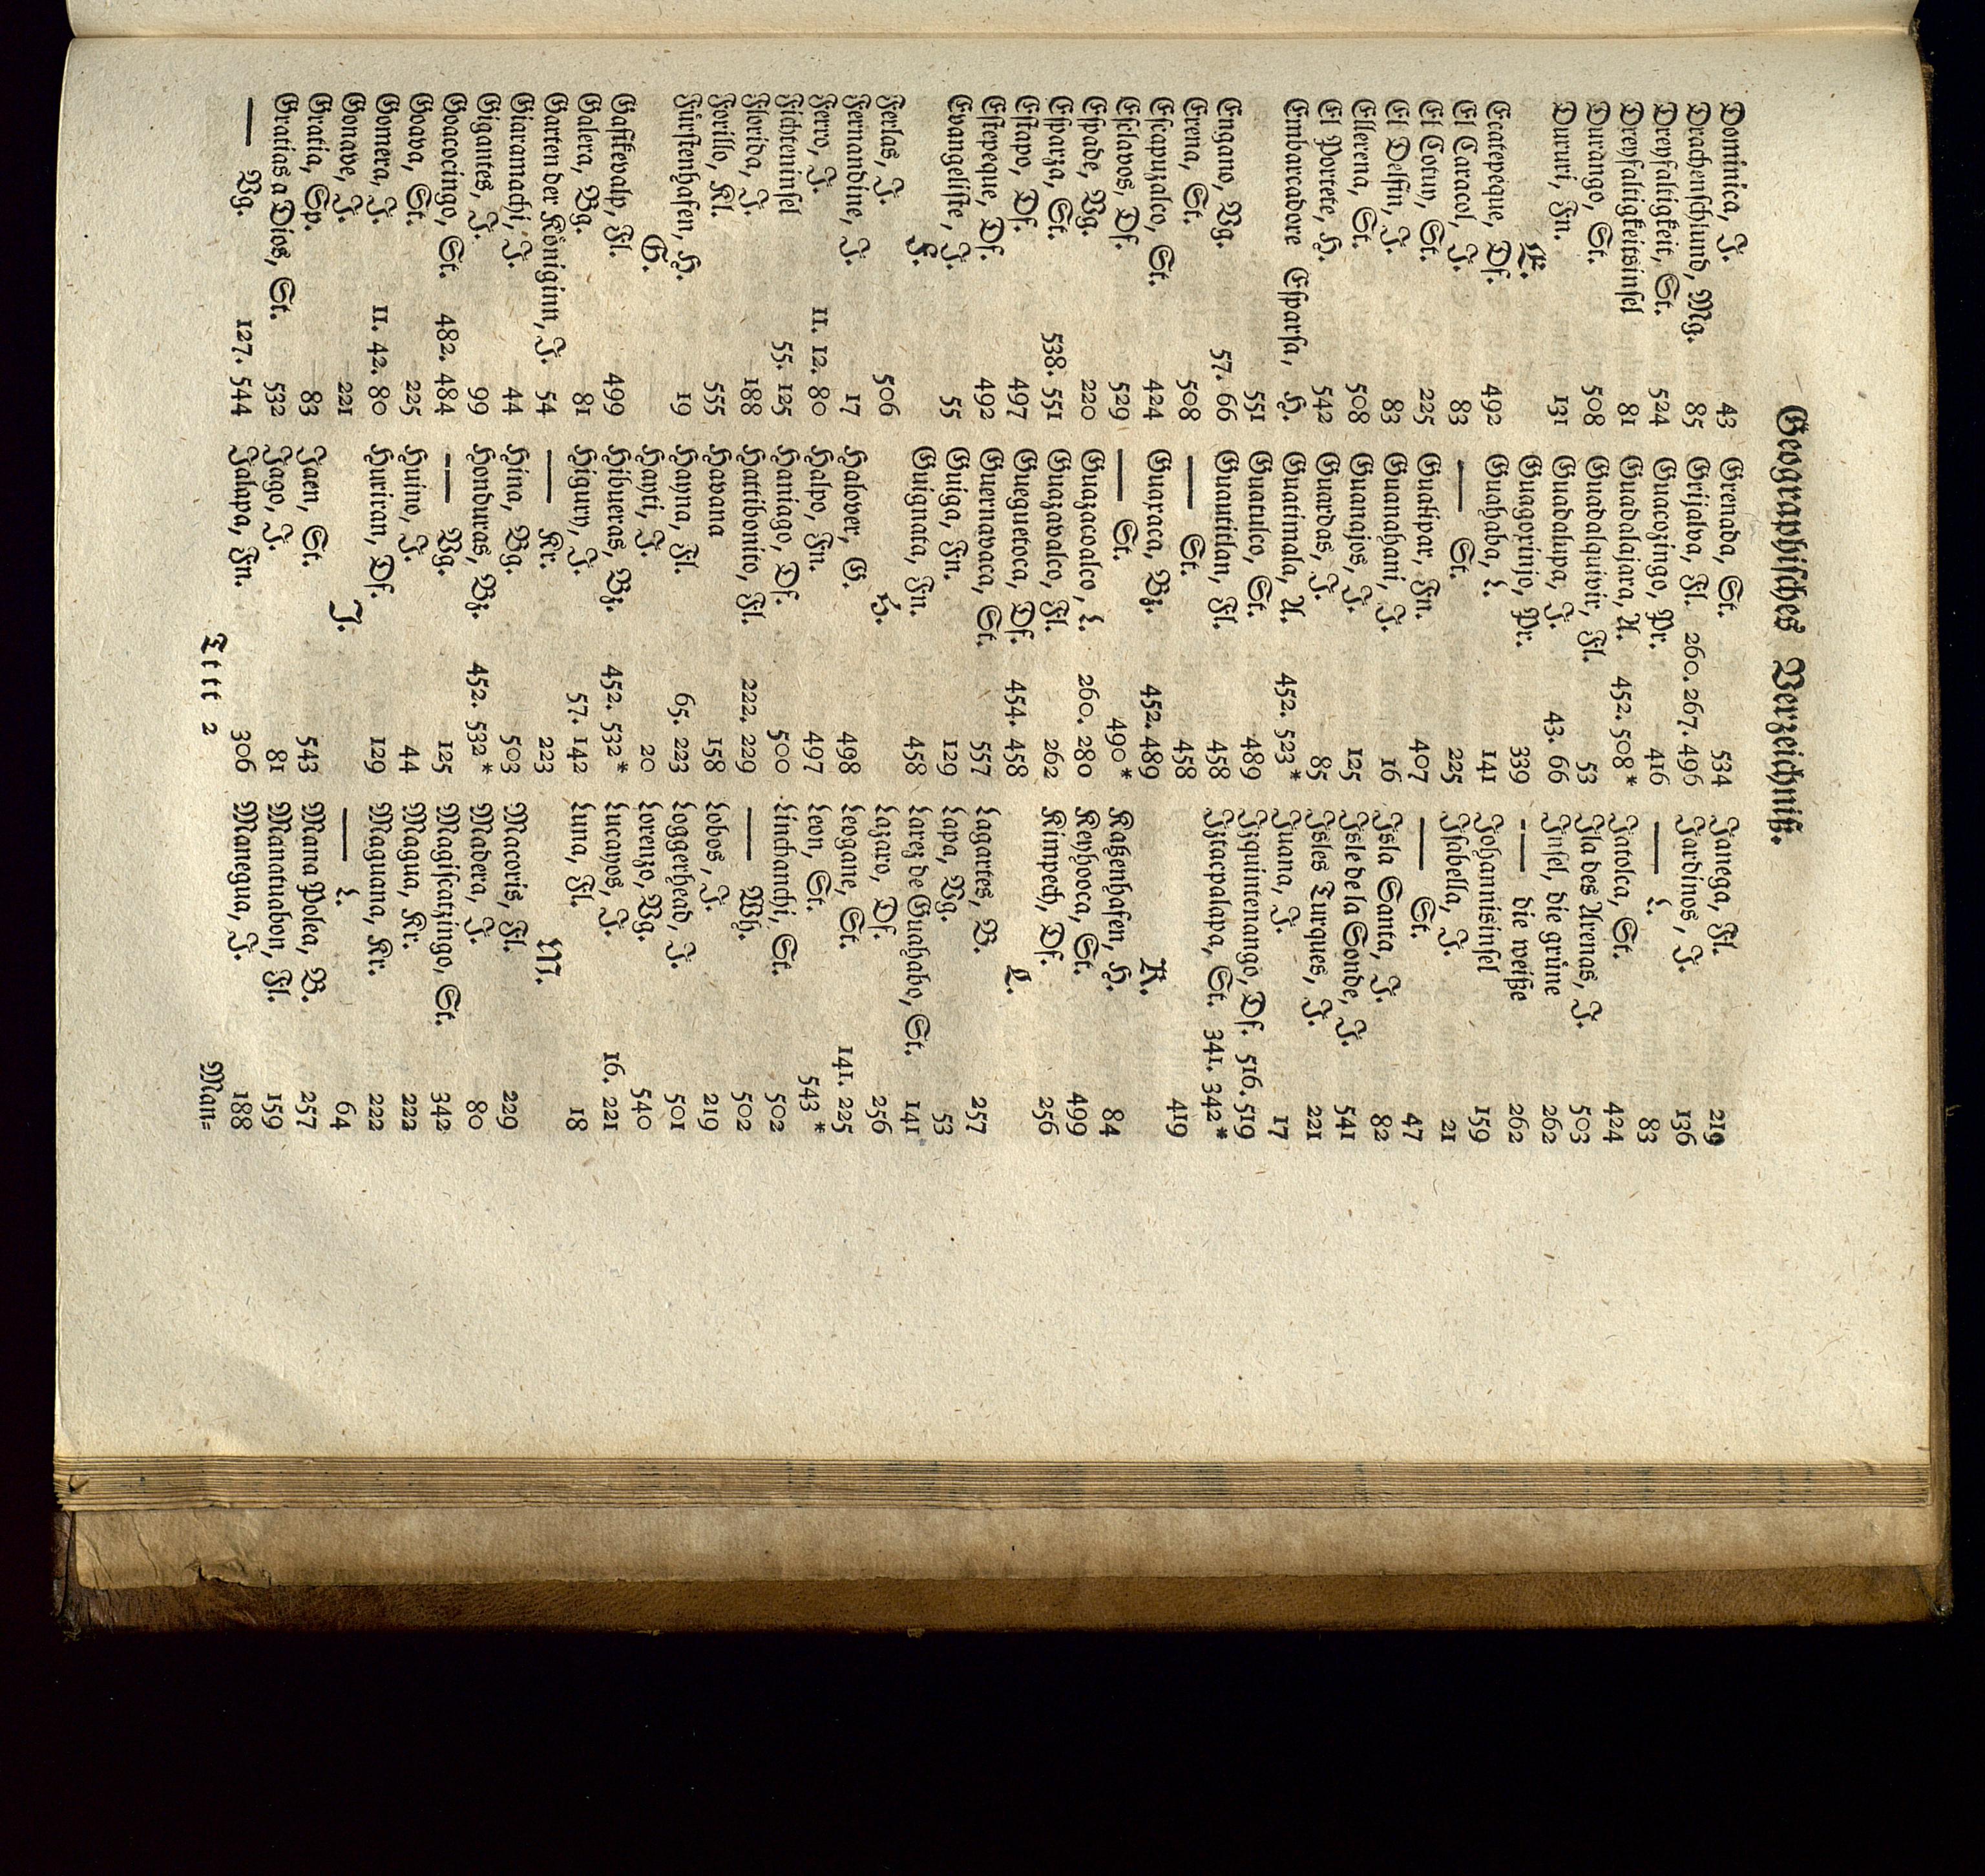 Geographisches Verzeichniß.
Dominica, J. 43
Drachenschlund, Mg. 85
Dreyfaltigkeit, St. 524
Dreyfaltigkeitsinsel 81
Durango, St. 508
Dururi, Jn. 131
E.
Ecatepeque, Df. 492
El Caracol, J. 83
El Cotuy, St. 225
El Delfin, J. 83
Ellerena, St. 508
El Portete, H. 542
Embarcadore Esparsa, H. 551
Engano, Vg. 57. 66
Erena, St. 508
Escapuzalco, St. 424
Esclavos, Df. 529
Espade, Vg. 220
Esparza, St. 538. 551
Estapo, Df. 497
Estepeque, Df. 492
Evangeliste, J. 55
F.
Ferlas, J. 506
Fernandine, J. 17
Ferro, J. 11. 12. 80
Fichteninsel 55. 125
Florida, J. 188
Forillo, Kl. 555
Fürstenhafen, H. 19
G.
Gaftkevalp, Fl. 499
Galera, Vg. 81
Garten der Königinn, J. 54
Giarramachi, J. 44
Gigantes, J. 99
Goacocingo, St. 482. 484
Goava, St. 225
Gomera, J. 11. 42. 80
Gonave, J. 221
Gratia, Sp. 83
Gratias a Dios, St. 532
— Vg. 127. 544
Grenada, St. 534
Grijalva, Fl. 260. 267. 496
Guacozingo, Pr. 416
Guadalajara, A. 452. 508*
Guadalquivir, Fl. 53
Guadalupa, J. 43. 66
Guagoxinjo, Pr. 339
Guahaba, L. 141
— St. 225
Gualipar, Jn. 407
Guanahani, J. 16
Guanajos, J. 125
Guardas, J. 85
Guatimala, A. 452. 523*
Guatulco, St. 489
Guautitlan, Fl. 458
— St. 458
Guaxaca, Bz. 452. 489
— St. 490*
Guazacoalco, L. 260. 280
Guazavalco, Fl. 262
Gueguetoca, Df. 454. 458
Guernavaca, St. 557
Guiga, Jn. 129
Guignata, Jn. 458
H.
Halover, G. 498
Halpo, Jn. 497
Haniago, Df. 500
Hattibonito, Fl. 222. 229
Havana 158
Hayna, Fl. 65. 223
Hayti, J. 20
Hibueras, Bz. 452. 532*
Higury, J. 57. 142
— Kr. 223
Hina, Bg. 503
Honduras, Bz. 452. 532*
— Vg. 125
Huino, J. 44
Huriran, Df. 129
J.
Jaen, St. 543
Jago, J. 81
Jalapa, Jn. 306
Janega, Fl. 219
Jardinos, J. 136
— L. 83
Jatolca, St. 424
Jla des Arenas, J. 503
Jnsel, die grüne 262
— die weiße 262
Johannisinsel 159
Jsabella, J. 21
— St. 47
Jsla Santa, J. 82
Jsle de la Sonde, J. 541
Jsles Turques, J. 221
Juana, J. 17
Jzquintenango, Df. 516. 519
Jztacpalapa, St. 341. 342*
419
K.
Katzenhafen, H. 84
Keyhooca, St. 499
Kimpech, Df. 256
L.
Lagartes, B. 257
Lapa, Vg. 53
Larez de Guahabo, St. 141
Lazaro, Df. 256
Leogane, St. 141. 225
Leon, St. 543*
Linchanchi, St. 502
— Wh. 502
Lobos, J. 219
Loggerhead, J. 501
Lorenzo, Vg. 540
Lucayos, J. 16. 221
Luna, Fl. 18
M.
Macoris, Fl. 229
Madera, J. 80
Magiscatzingo, St. 342
Magua, Kr. 222
Maguana, Kr. 222
— L. 64
Mana Polea, B. 257
Manatuabon, Fl. 159
Manegua, J. 188
Tttt 2
Man=